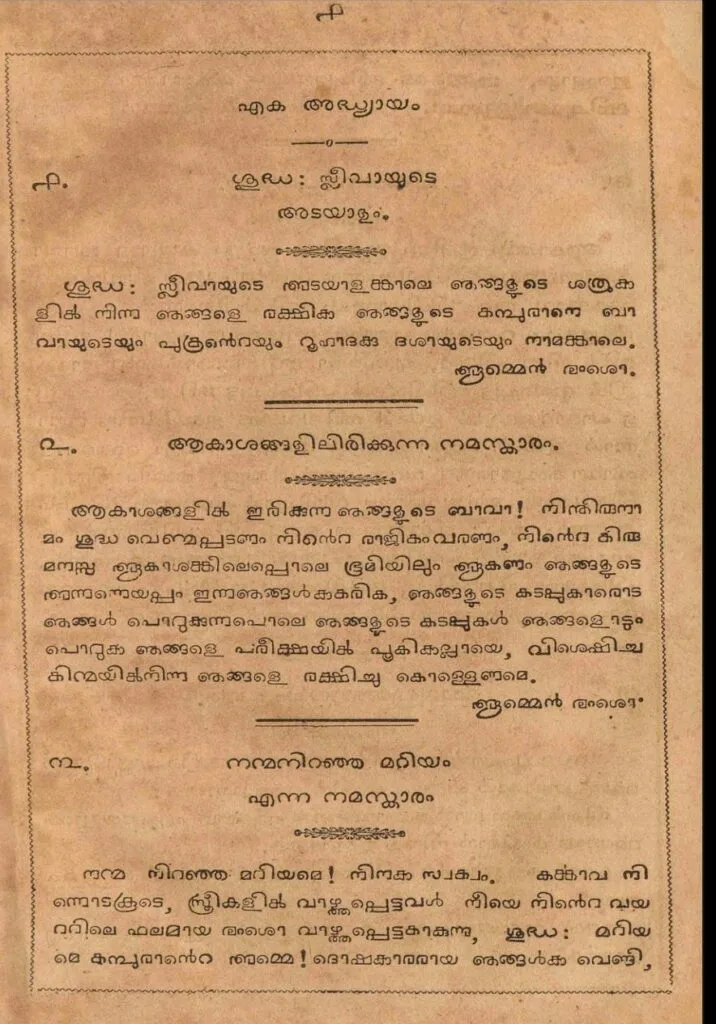 ൧
ഏക അദ്ധ്യായം
൧. ശുദ്ധ: സ്ലീവായുടെ
അടയാളം.
ശുദ്ധ: സ്ലീവായുടെ അടയാളത്താലെ ഞങ്ങളുടെ ശത്രുക
ളിൽ നിന്ന ഞങ്ങളെ രക്ഷിക്ക ഞങ്ങളുടെ തമ്പുരാനെ ബാ
വായുടെയും പുത്രൻറെയും റൂഹാദക്കു ദശായുടെയും നാമത്താലെ.
ആമ്മെൻ ൟശൊ.
൨. ആകാശങ്ങളിലിരിക്കുന്ന നമസ്കാരം.
ആകാശങ്ങളിൽ ഇരിക്കുന്ന ഞങ്ങളുടെ ബാവാ! നിന്തിരുനാ
മം ശുദ്ധ വെണ്മപ്പടണം നിൻറെ രാജിതംവരണം, നിൻറെ തിരു
മനസ്സ ആകാശത്തിലെപ്പൊലെ ഭൂമിയിലും ആകണം ഞങ്ങളുടെ
അന്നന്നെയപ്പം ഇന്നഞങ്ങൾക്കതരിക, ഞങ്ങളുടെ കടപ്പുകാരൊട
ഞങ്ങൾ പൊറുക്കുന്നപൊലെ ഞങ്ങളുടെ കടപ്പുകൾ ഞങ്ങളൊട്ടും
പൊറുക്ക ഞങ്ങളെ പരീക്ഷയിൽ പൂകിക്കല്ലായെ, വിശെഷിച്ച
തിന്മയിൽനിന്ന ഞങ്ങളെ രക്ഷിച്ചു കൊള്ളെണമെ.
ആമ്മെൻ ൟശൊ.
൩. നന്മനിറഞ്ഞ മറിയം
എന്ന നമസ്കാരം
നന്മ നിറഞ്ഞ മറിയമെ! നിനക്ക സ്വസ്തി. കൎത്താവ നി
ന്നൊടകൂടെ, സ്ത്രീകളിൽ വാഴ്ത്തപ്പെട്ടവൾ നീയെ നിൻറെ വയ
റ്റിലെ ഫലമായ ൟശൊ വാഴ്ത്തപ്പെട്ടതാകുന്നു, ശുദ്ധ: മറിയ
മെ തമ്പുരാൻറെ അമ്മെ! ദൊഷക്കാരരായ ഞങ്ങൾക്ക വെണ്ടി,